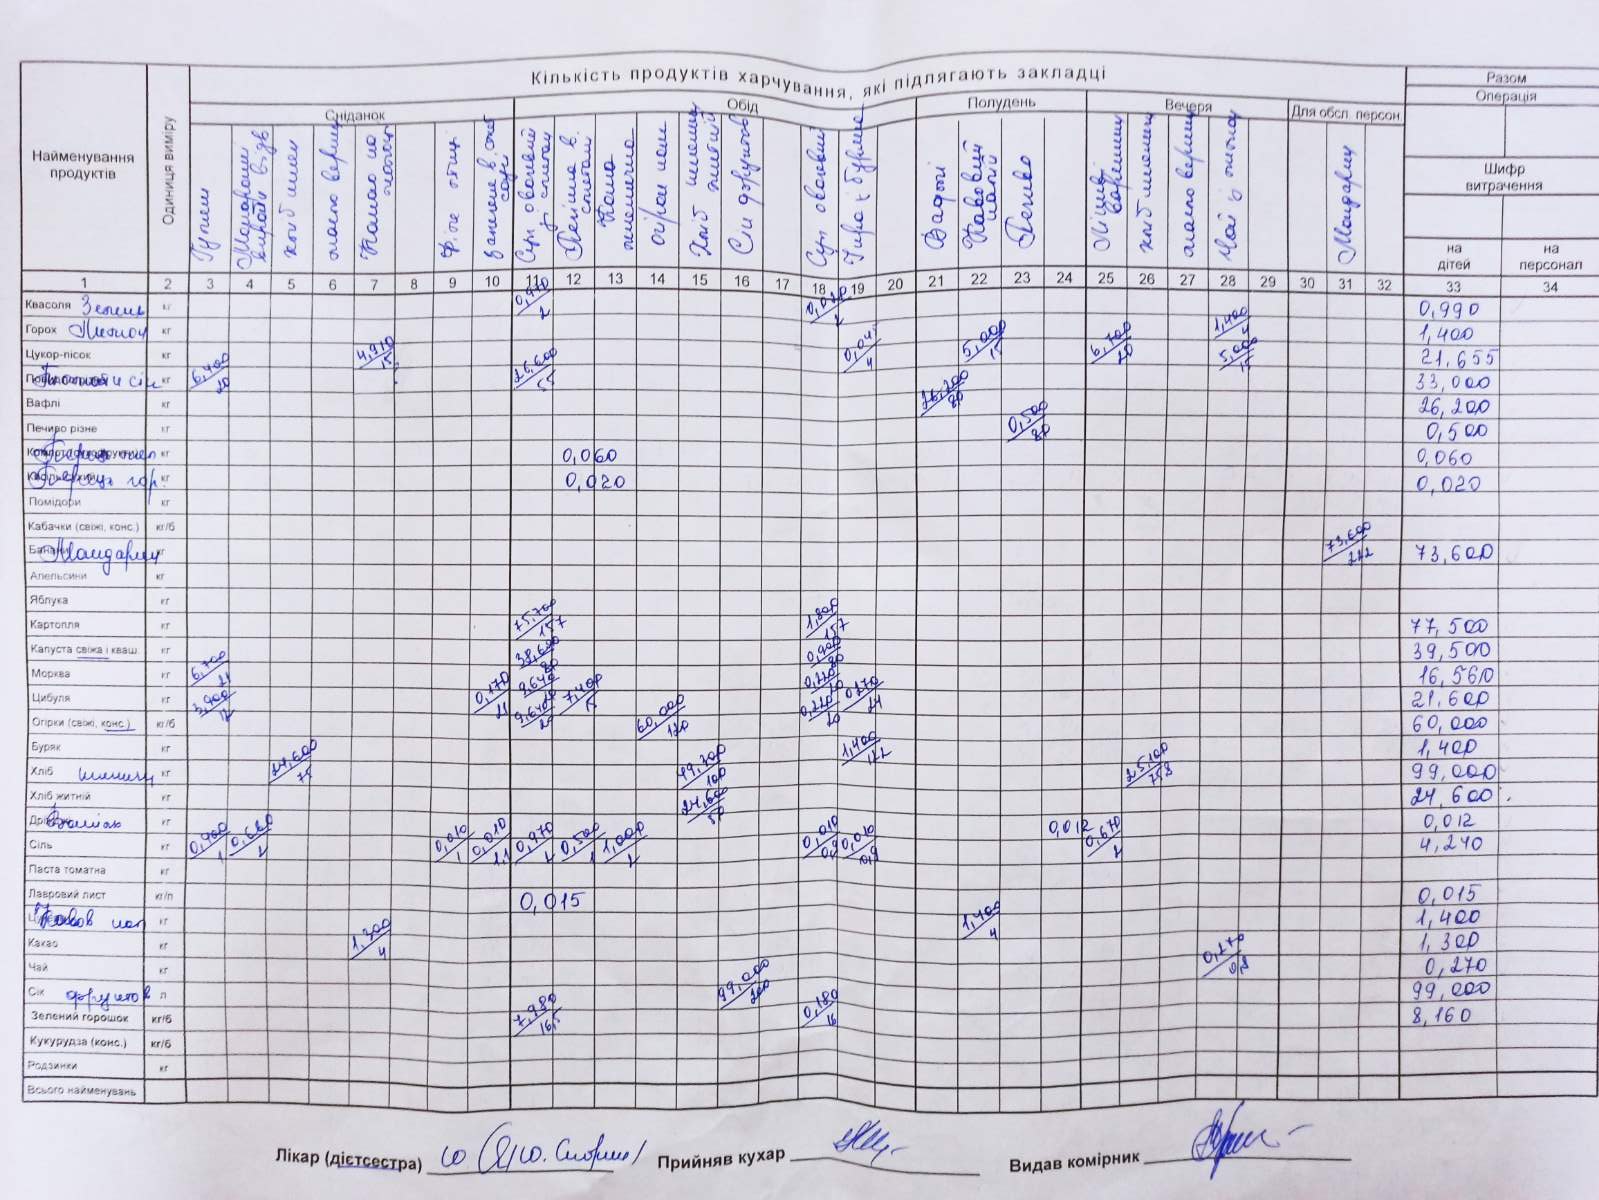 Кількість продуктів харчування, які підлягають закладці
Разом
Операція
Сніданок
Обід
Полудень
Вечеря
Для обсл. персон.
Найменування продуктів
Одиниця виміру
Шифр витрачення
на дітей
на персонал
Гуляш
хліб пшен
масло вершк
Какао на
Філе птиці
Суп овочевий
огірок
Хліб пшенич житній
Сік фруктов
Суп овочевий
Вафлі
Кавовий напій
Печиво
хліб пшенич
масло вершк
Чай із
Мандарин
1 2 3 4 5 6 7 8 9 10 11 12 13 14 15 16 17 18 19 20 21 22 23 24 25 26 27 28 29 30 31 32 33 34
Квасоля Зелень кг 0,970/2 0,020/2 0,990
Горох кг 1,400/4 1,400
Цукор-пісок кг 4,910/15 5,000/15 5,000/15 21,655
кг 6,400/20 26,600/55 33,000
Вафлі кг 26,200/80 26,200
Печиво різне кг 0,500/80 0,500
кг 0,060 0,060
Перець гор. кг 0,020 0,020
Помідори кг
Кабачки (свіжі, конс.) кг/б
Банани Мандарин кг 73,600/222 73,600
Апельсини кг
Яблука кг
Картопля кг 75,700/157 1,800/157 77,500
Капуста свіжа і кваш. кг 38,600/80 0,900/80 39,500
Морква кг 6,700/21 9,640/20 0,220/20 16,560
Цибуля кг 3,900/12 0,170/21 9,640/20 7,400/15 0,220/20 0,270/24 21,600
Огірки (свіжі, конс.) кг/б 60,000/120 60,000
Буряк кг 1,400/122 1,400
Хліб пшенич кг 24,600/75 49,300/100 25,100/75,8 99,000
Хліб житній кг 24,600/50 24,600
кг 0,012 0,012
Сіль кг 0,680/2 0,010/1 0,010/1,1 0,970/2 0,500/1 1,000/2 0,010/0,9 0,010/0,9 0,670/2 4,240
Паста томатна кг
Лавровий лист кг/п 0,015 0,015
Кавов нап кг 1,400/4 1,400
Какао кг 1,300/4 1,300
Чай кг 0,270/0,8 0,270
Сік фруктов л 99,000/200 99,000
Зелений горошок кг/б 7,980/16,5 0,180/16 8,160
Кукурудза (конс.) кг/б
Родзинки кг
Всього найменувань
Лікар (дієтсестра)
Прийняв кухар
Видав комірник